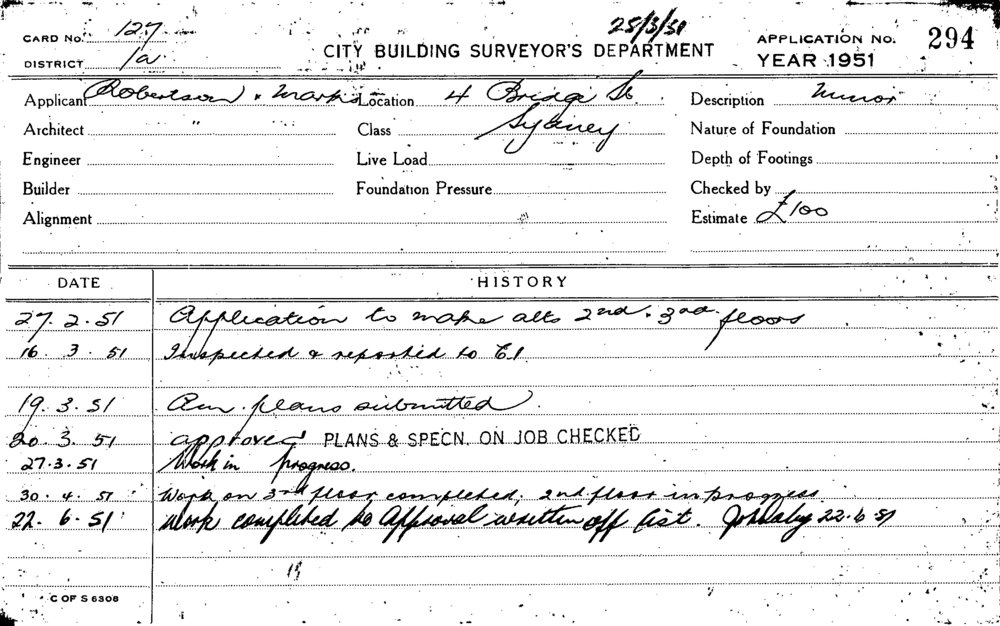 25/3/51
CARD No. 127 CITY BUILDING SURVEYOR'S DEPARTMENT APPLICATION No. 294
DISTRICT 1a YEAR 1951
Applicant Robertson & Marks Location 4 Bridge St Description Minor
Architect " Class Sydney Nature of Foundation
Engineer Live Load Depth of Footings
Builder Foundation Pressure Checked by
Alignment Estimate £100
DATE HISTORY
27.2.51 Application to make alts 2nd & 3rd floors
16.3.51 Inspected & reported to
19.3.51 Am. plans submitted.
20.3.51 approved PLANS & SPECN. ON JOB CHECKED
27.3.51 Work in progress.
30.4.51 Work on 3rd floor completed; 2nd floor in progress
22.6.51 Work completed to Approval written off list. 22.6.51
C OF S 6308